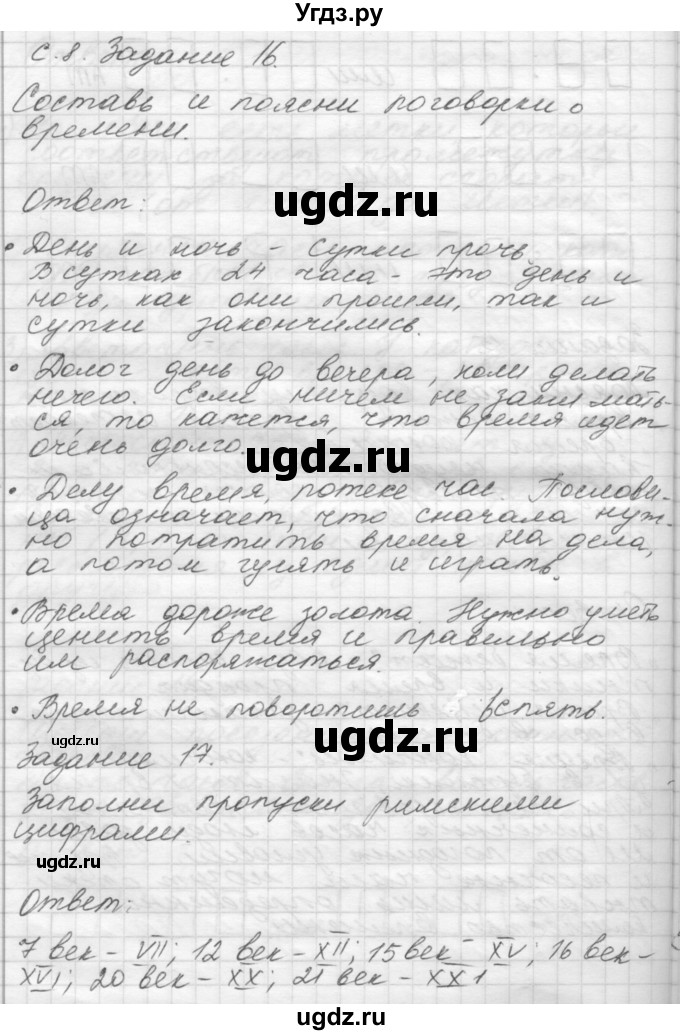 Угдз.ру
с. 8. Задание 16.
Составь и поясни поговорки о
времени.
ugdz.ru
Ответ:
• День и ночь - сутки прочь.
В сутках 24 часа - это день и
ночь, как они прошли, так и
сутки закончились.
• Долог день до вечера, коли делать
нечего. Если ничем не занимать-
ся, то кажется, что время идет
очень долго.
ugdz.ru
• Делу время, потехе час. Послови-
ца означает, что сначала нуж-
но потратить время на дела,
а потом гулять и играть.
• Время дороже золота. Нужно уметь
ценить время и правильно
им распоряжаться.
• Время не поворотишь вспять.
ugdz.ru
ugdz.ru
Задание 17.
Заполни пропуски римскими
цифрами.
ugdz.ru
Ответ:
7 век - VII; 12 век - XII; 15 век - XV; 16 век -
XVI; 20 век - XX; 21 век - XXI